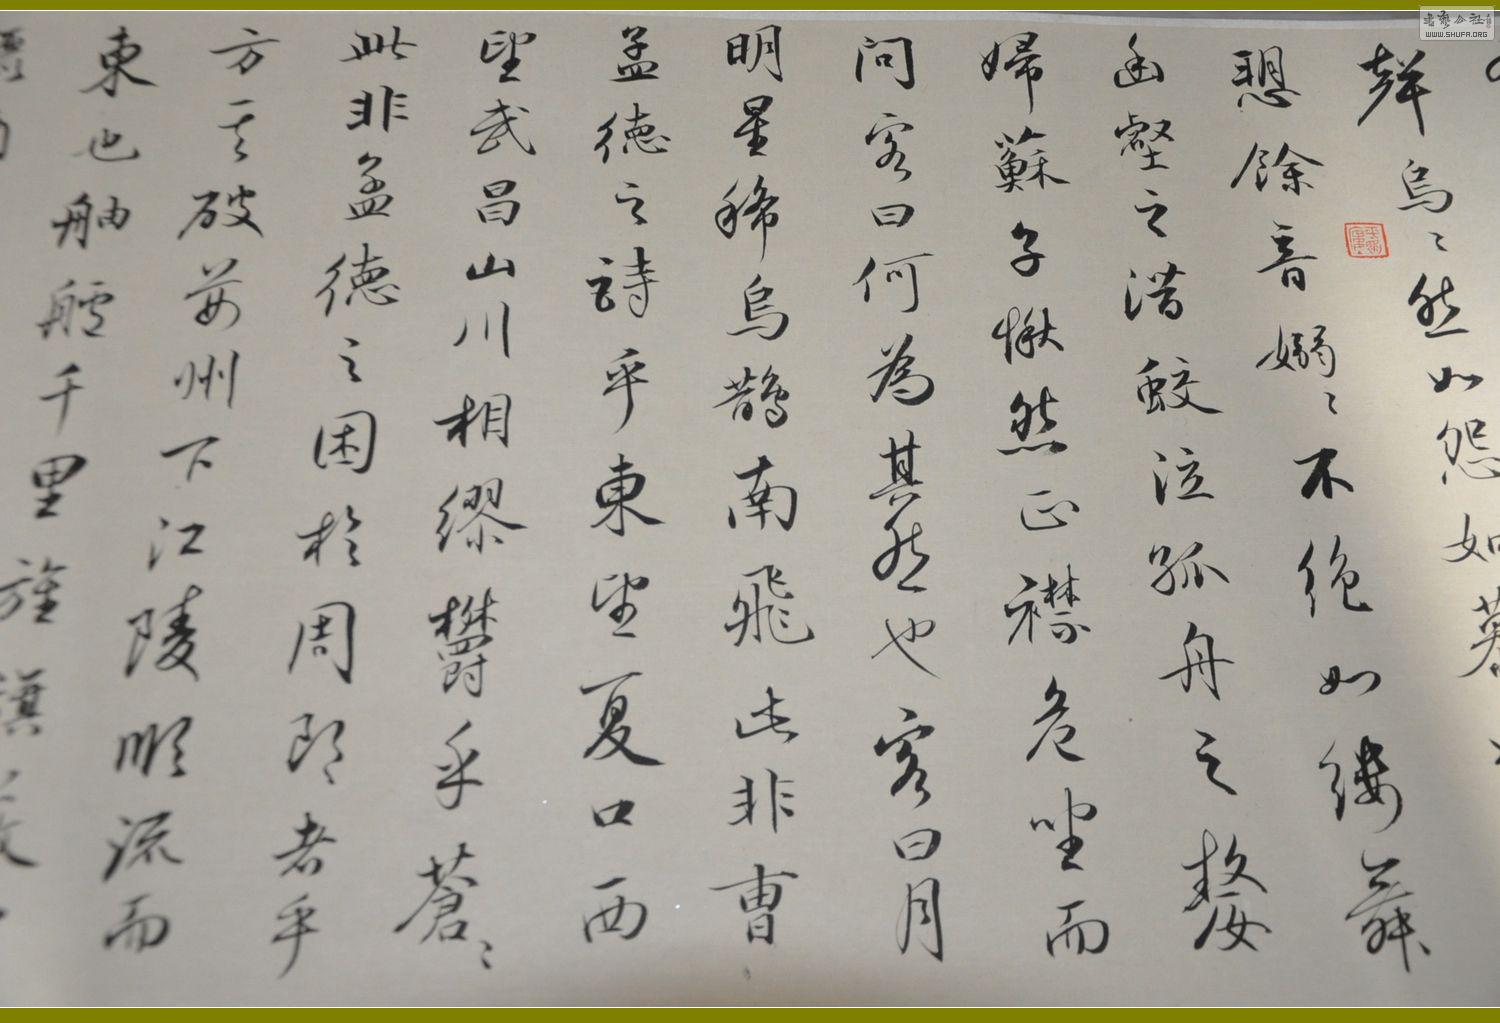 聲烏〻然如怨如慕
愬餘音嫋〻不絕如縷舞
幽壑之潛蛟泣孤舟之嫠
婦蘇子愀然正襟危坐而
問客曰何為其然也客曰月
明星稀烏鵲南飛此非曹
孟德之詩乎東望夏口西
望武昌山川相繆鬱乎蒼〻
此非孟德之困於周郎者乎
方其破荊州下江陵順流而
東也舳艫千里旌旗蔽
WWW.SHUFA.ORG